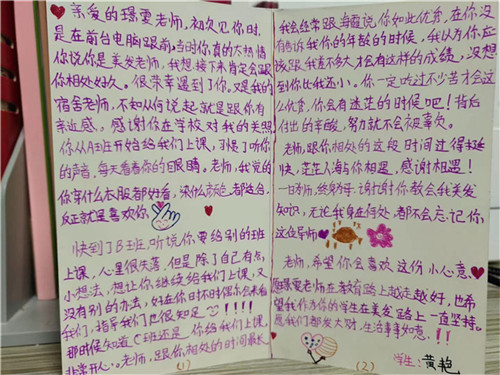 亲爱的璟雯老师，初次见你时，
是在前台电脑跟前，当时你真的太热情
你说你是美发老师，我想接下来肯定会跟
你相处好久。很荣幸遇到了你，又是我的
宿舍老师，不知从何说起就是跟你有
亲近感。感谢你在学校对我的关照
你从A班开始给我们上课，习惯了听你
的声音，每天看着你的眼睛。老师，我觉的
你穿什么衣服都好看，染什么颜色都适合，
反正就是喜欢你
快到了B班，听说你要给别的班
上课，心里很失落，但是除了自己有点
小想法，想让你继续给我们上课，又
没有别的办法，好在你时不时偶尔会来看
我们，指导我们也很知足 !!!!
那时候知道C班还是你给我们上课，
非常开心。老师，跟你相处的时间最长
(1)
我会经常跟海霞说你如此优秀，在你没
有告诉我你的年龄的时候，我以为你应
该跟我差不多大才会有这样的成绩，没想
到你比我还小。你一定吃过不少苦才会这
么优秀，你会有迷茫的时候吧！背后
付出的辛酸，努力就不会被辜负。
老师，跟你相处的这段时间过得挺
快，茫茫人海与你相遇，感谢相遇！
一日为师，终身为母，谢谢你教会我美发
知识，无论我身在何处，都不会忘记你
这位导师
老师，希望你会喜欢这份小心意
愿璟雯老师在教育路上越走越好，也希
望我作为你的学生在美发路上一直坚持。
愿我们都发大财，生活事事如意.！！
(2)
学生：黄艳